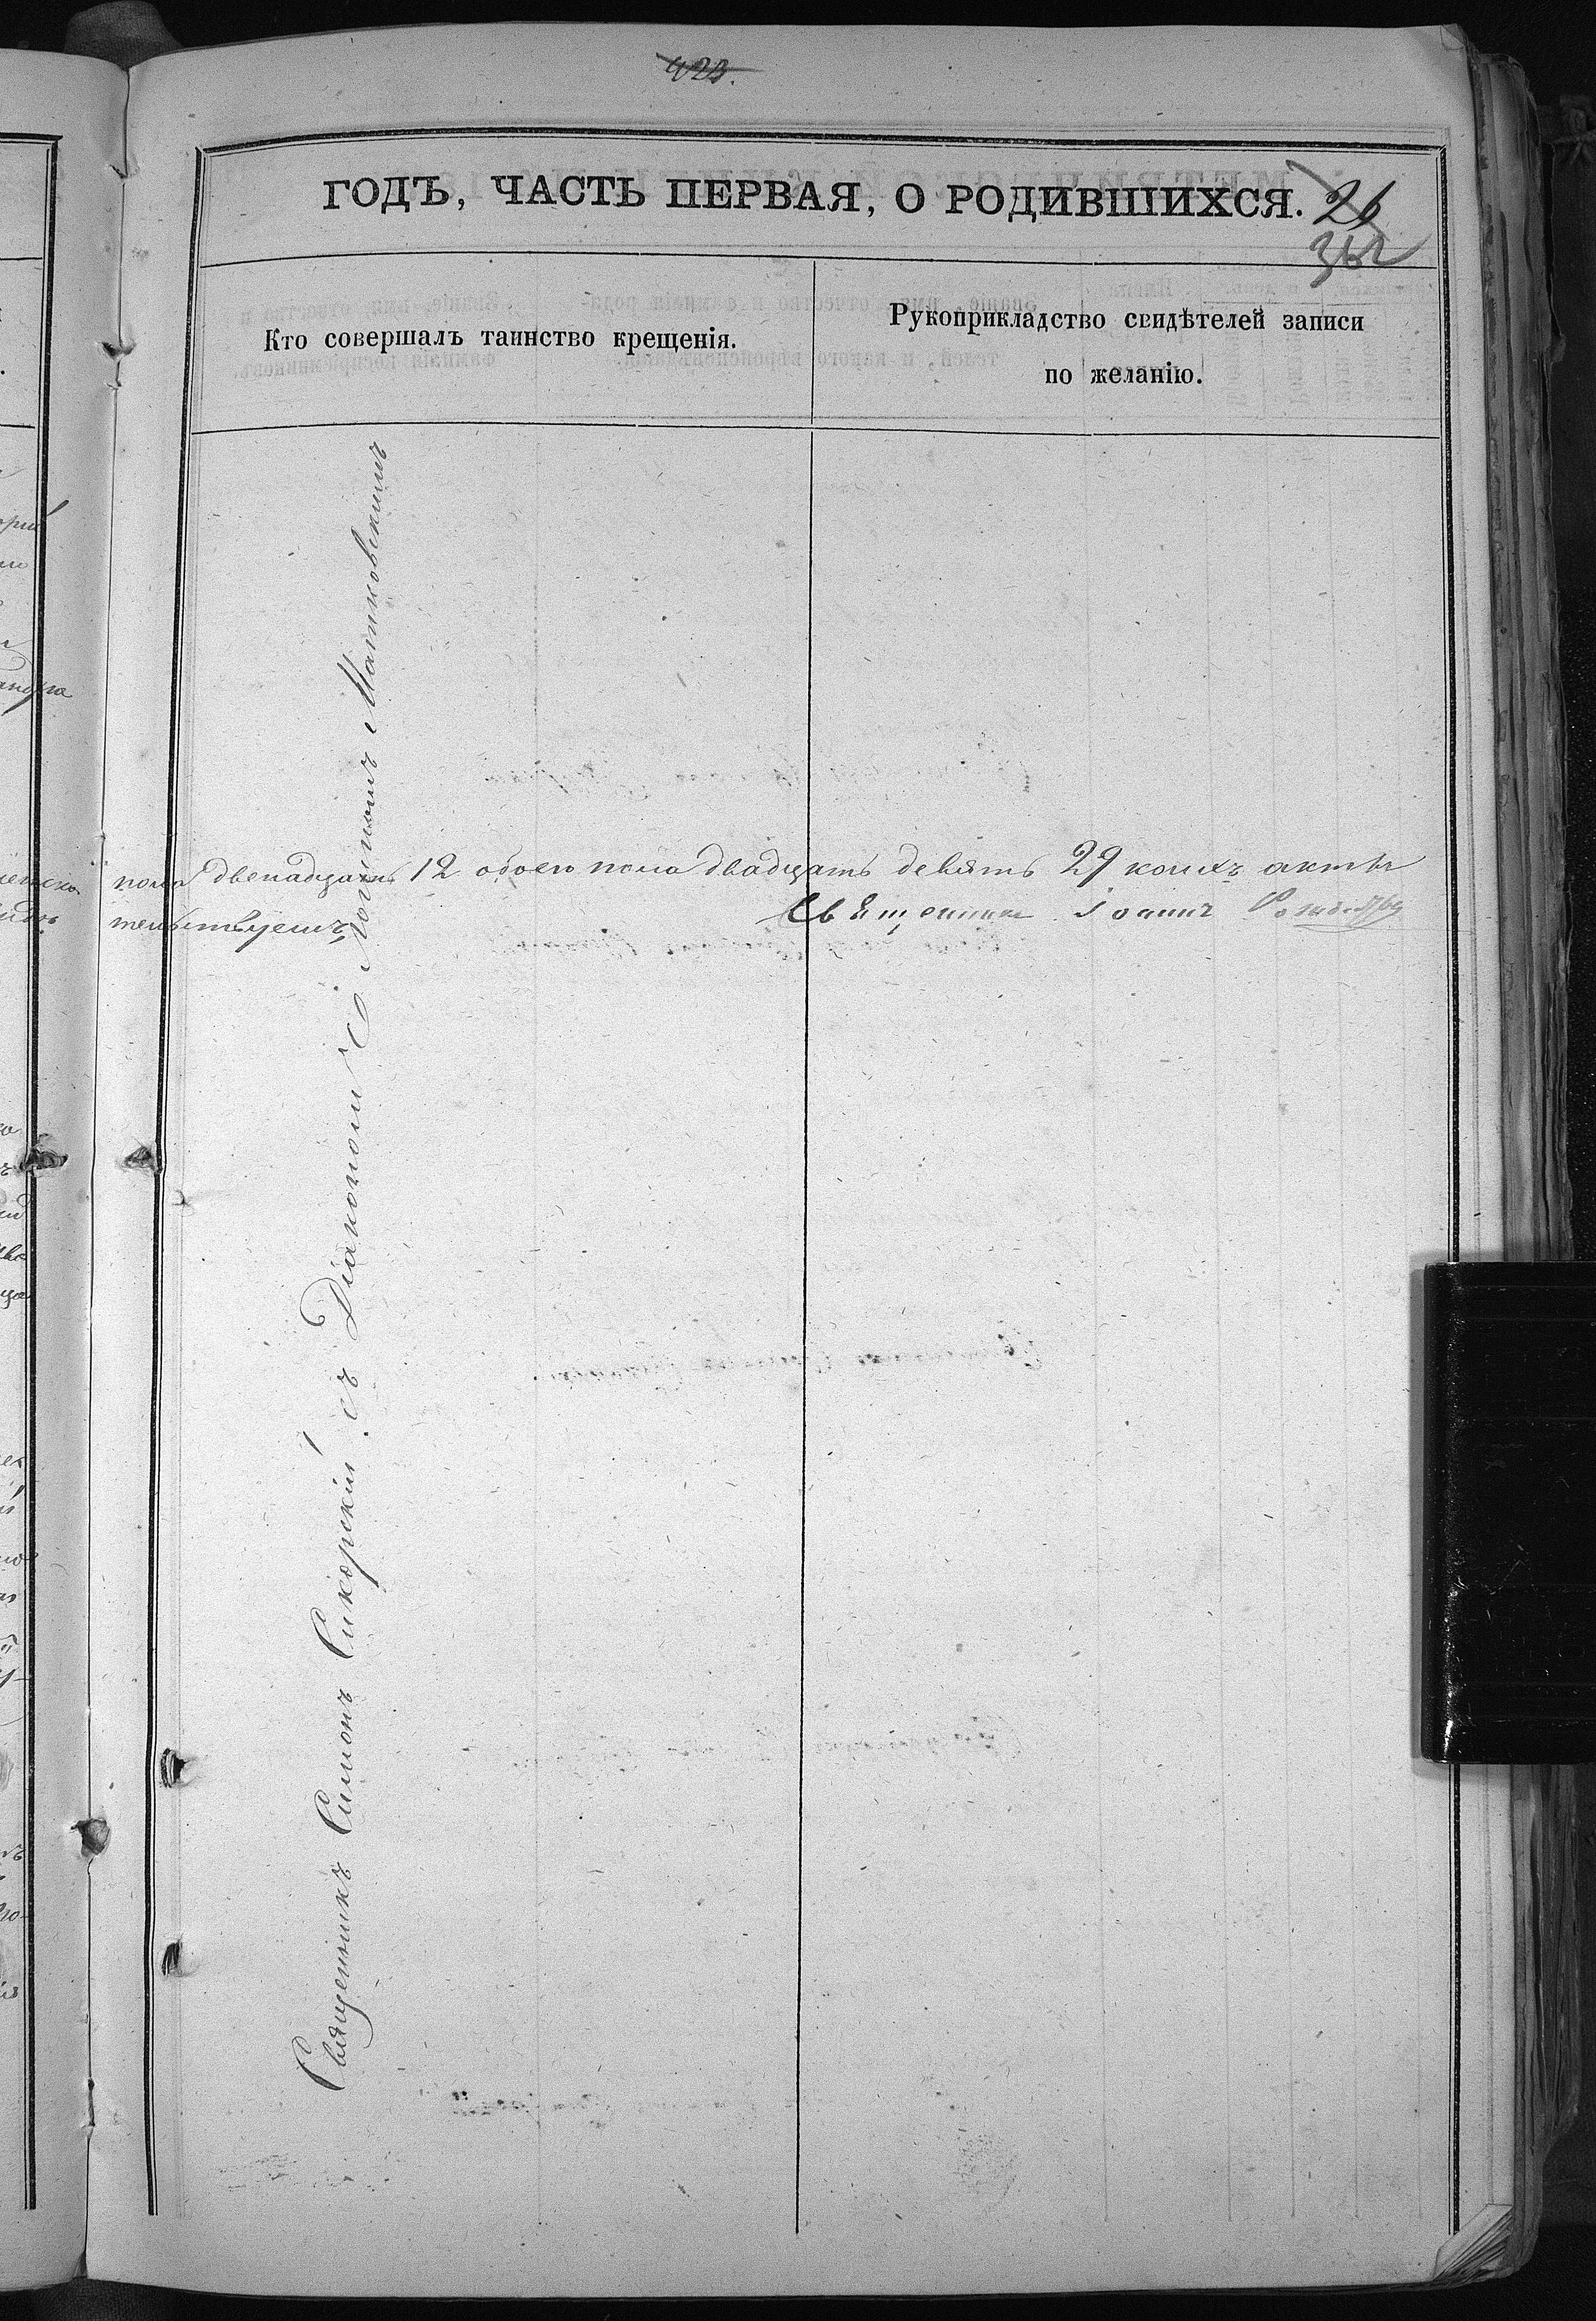 423.
ГОДЪ, ЧАСТЬ ПЕРВАЯ, О РОДИВШИХСЯ. 26
Кто совершалъ таинство крещенія.
Рукоприкладство свидѣтелей записи
по желанію.
Священникъ Симонъ Сикорскій съ Діакономъ Логиномъ Матковскимъ
пола двенадцать 12 обоего пола двадцать девять 29 коихъ акты
тельствуемъ, Священникъ Іоаннъ